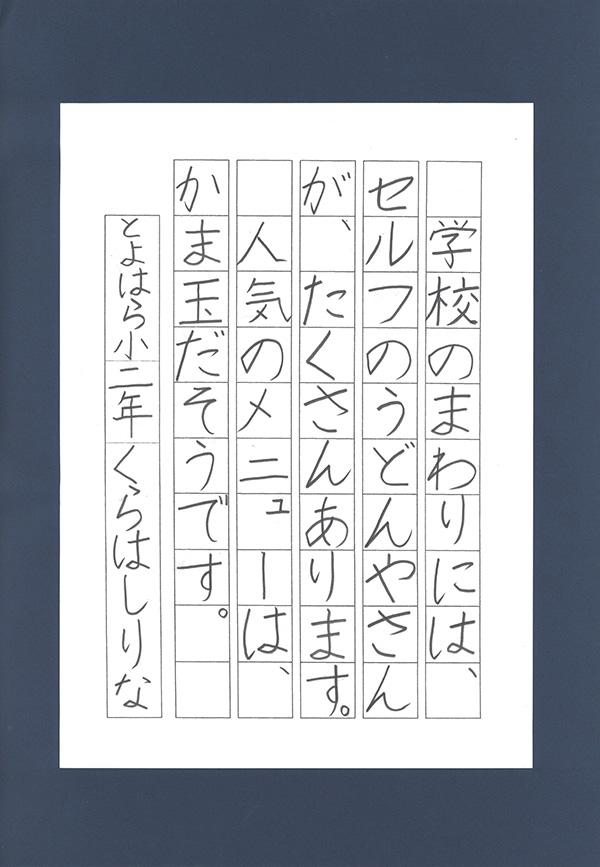 学校のまわりには、
セルフのうどんやさん
が、たくさんあります。
　人気のメニューは、
かま玉だそうです。
とよはら小二年くらはしりな